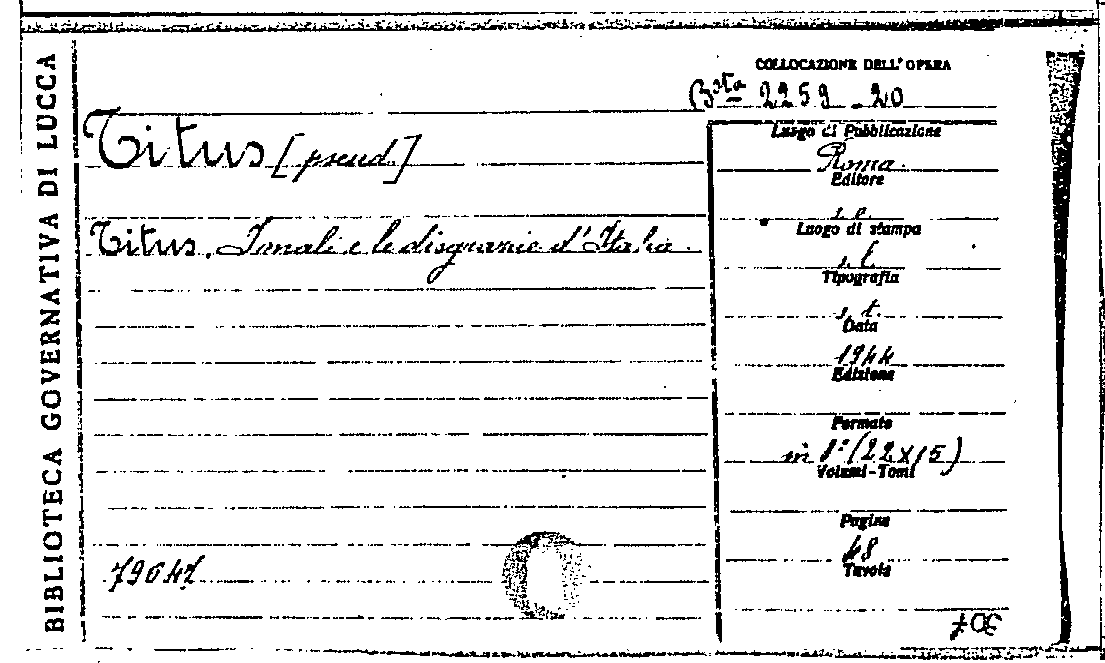 BIBLIOTECA GOVERNATIVA DI LUCCA
COLLOCAZIONE DELL'OPERA
Bsta 2259-20
Titus [pseud.]
Titus. I mali e le disgrazie d'Italia.
79647
Luogo di Pubblicazione
Roma.
Editore
s. e.
Luogo di stampa
s. l.
Tipografia
s. t.
Data
1944
Edizione
Formato
in 8° (22x15)
Volumi-Tomi
Pagine
48
Tavole
307